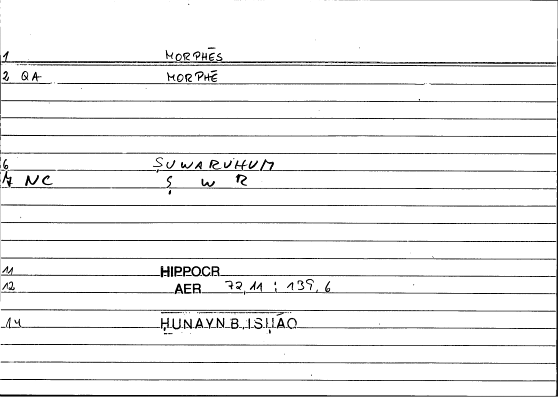 1 MORPHĒS
2 QA MORPHĒ
6 ṢUWARUHUM
7 NC Ṣ W R
11 HIPPOCR
12 AER 72,11 : 139,6
14 ḤUNAYN B. ISḤĀQ